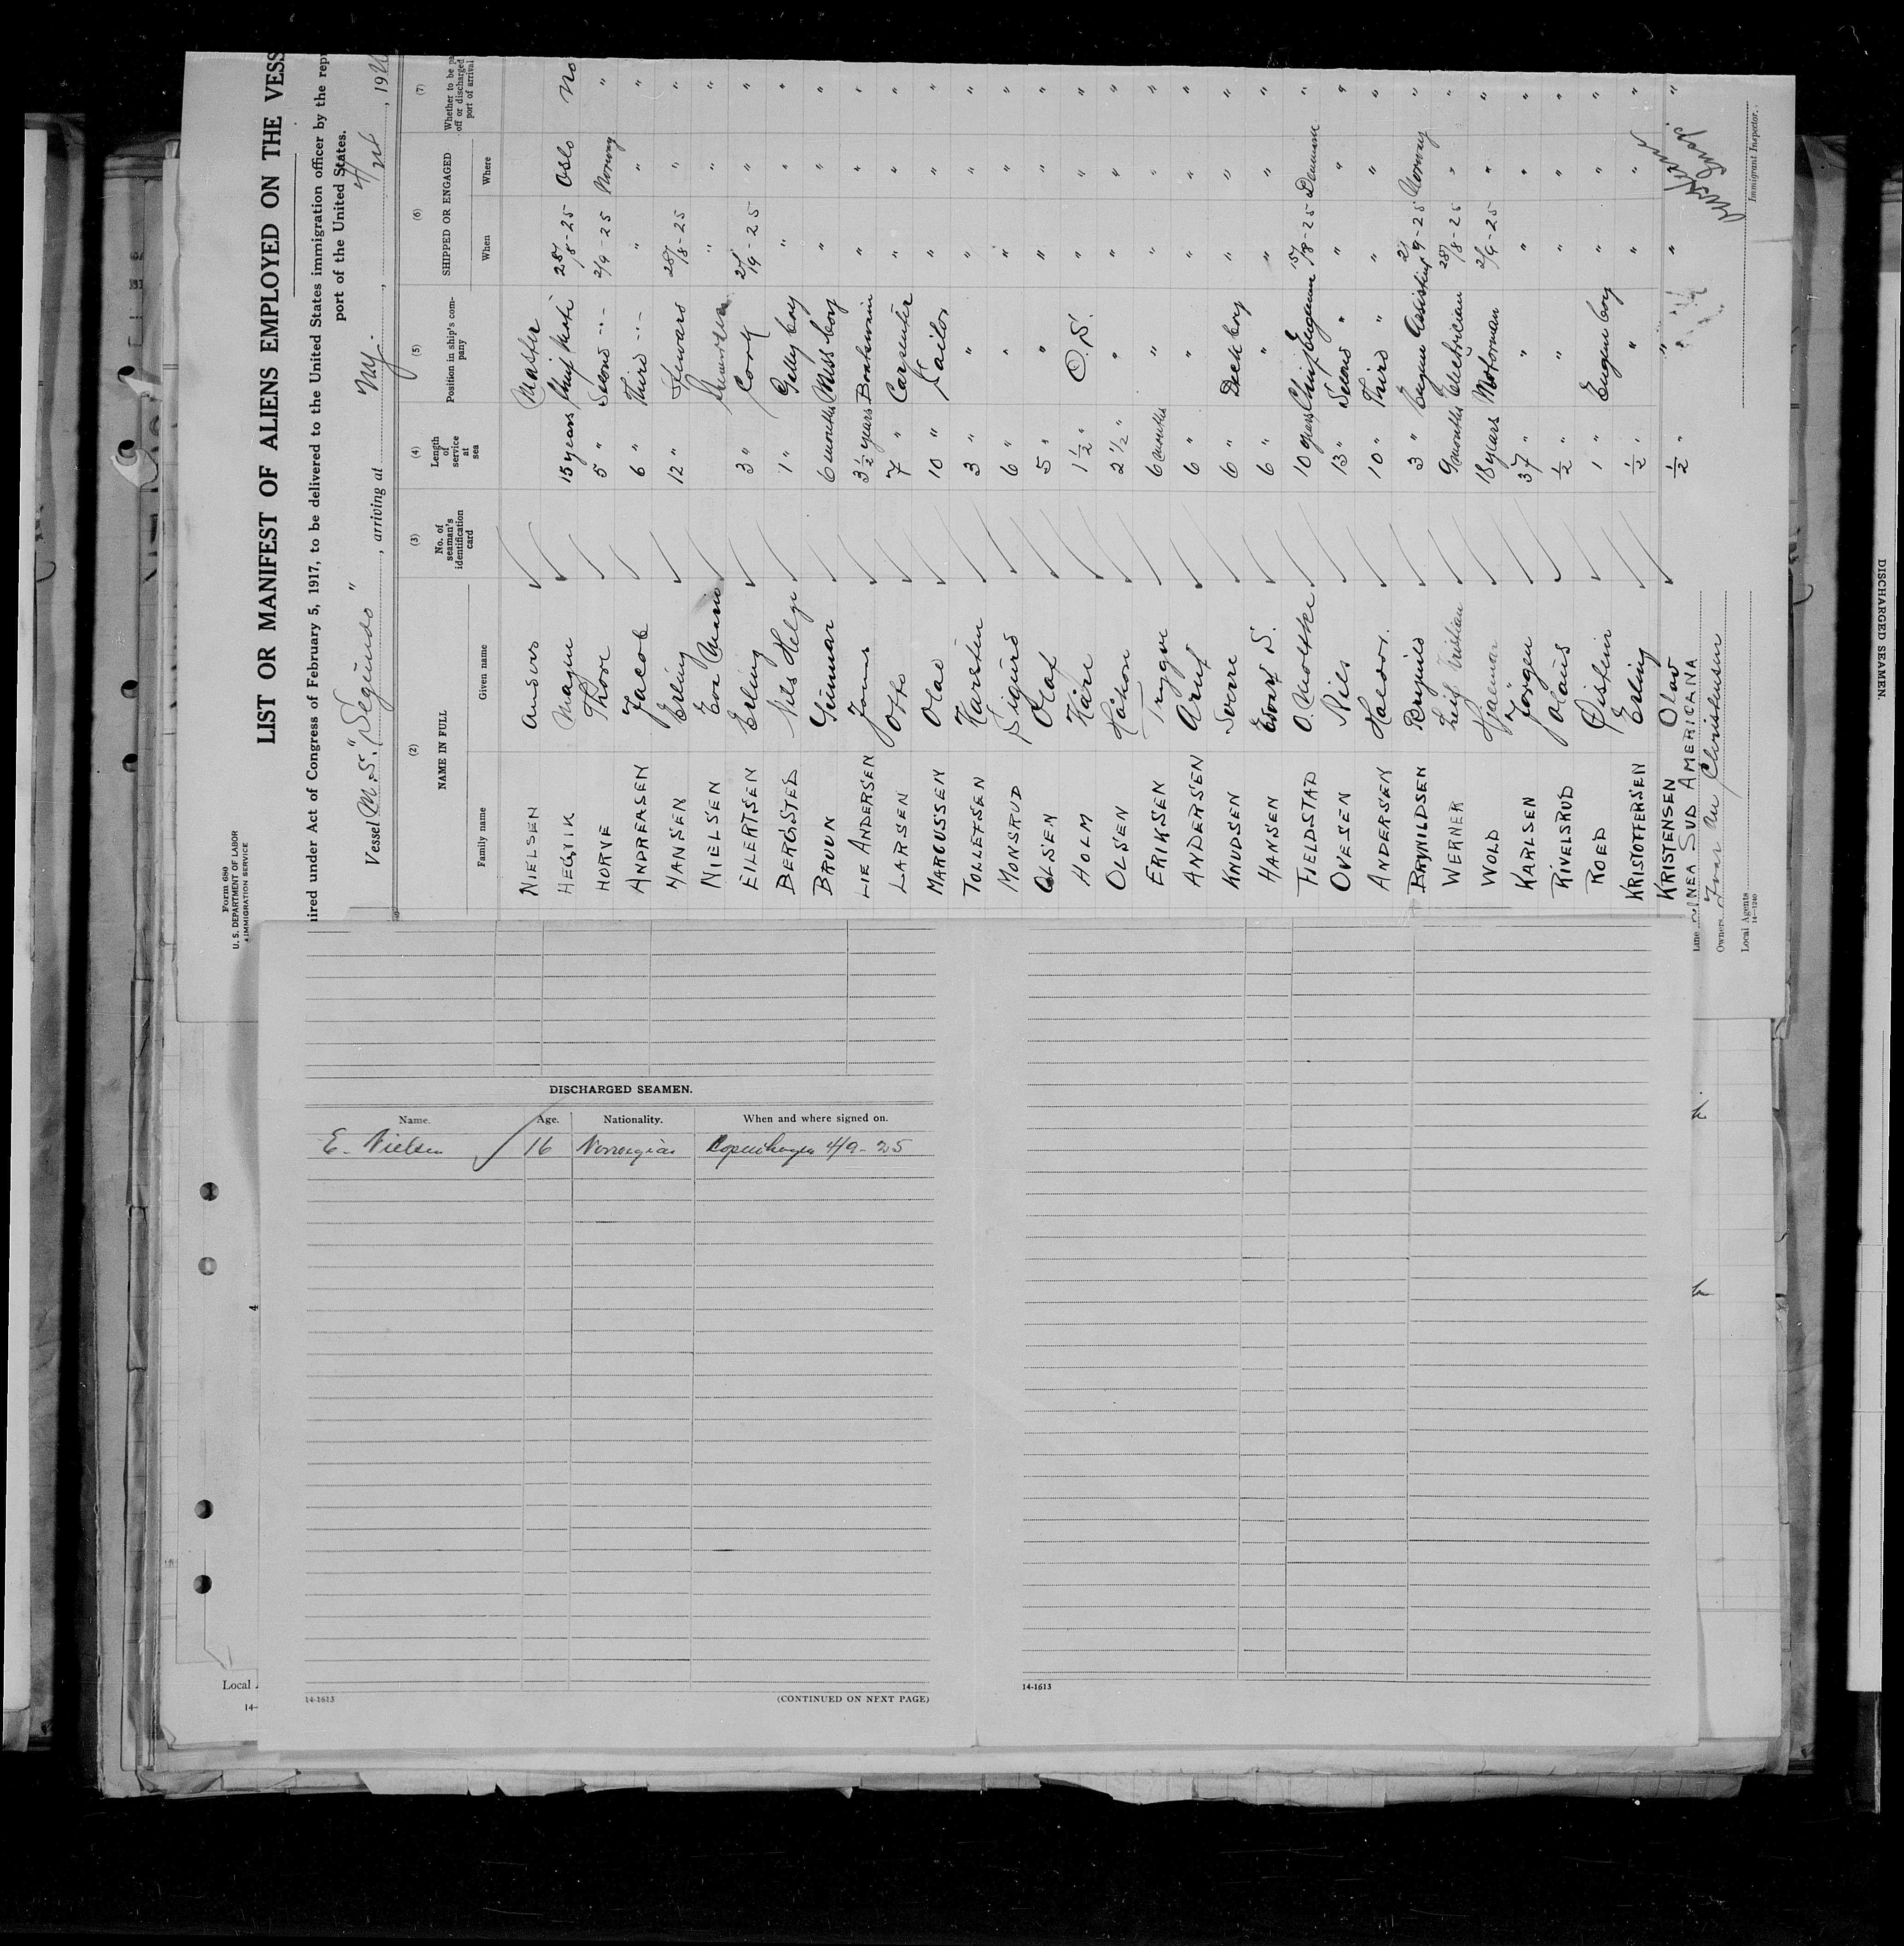 Form 680
U. S. DEPARTMENT OF LABOR
IMMIGRATION SERVICE
LIST OR MANIFEST OF ALIENS EMPLOYED ON THE VESS
ired under Act of Congress of February 5, 1917, to be delivered to the United States immigration officer by the rep
port of the United States.
Vessel M.S. "Segundo", arriving at NY., 19
(2) (3) (4) (5) (6) (7)
NAME IN FULL
Family name Given name
No. of seaman's identification card
Length of service at sea
Position in ship's company
SHIPPED OR ENGAGED
When Where
Whether to be pa
off or discharged
port of arrival
NIELSEN Anders Master
HENRIK Magen 15 years Chief Mate 28/8-25 Oslo No
HORVE Thore 5 " Second -"- 2/9-25 Norway "
ANDREASEN Jacob 6 " Third -"- " " "
HANSEN Erling 12 " Steward 28/8-25 " "
NIELSEN Eva Marie " " "
EILERTSEN Erling 3 " Cook " "
BERGSTED Nils Helge 1 " Gally boy " " "
BRUUN Gunnar 6 months Mess boy " " "
LIE ANDERSEN Jonns 3 1/2 years Boatswain " " "
LARSEN Otto 7 " Carpenter " " "
MARCUSSEN Olav 10 " Sailor " " "
TOLLEFSEN Karsten 3 " " " " "
MONSRUD Sigurd 6 " " " " "
OLSEN Olaf 5 " " " " "
HOLM Kåre 1 1/2 " O.S. " " "
OLSEN Håkon 2 1/2 " " " " "
ERIKSEN Trygve 6 months " " " "
ANDERSEN Arnt 6 " " " " "
KNUDSEN Sverre 6 " Deck boy " " "
HANSEN Edvard S. 6 " " " " "
FJELDSTAD O. Moltke 10 years Chief Engineer 15/8-25 Denmark "
OVESEN Nils 13 " Second " " " "
ANDERSEN Halvor. 10 " Third " " " "
BRYNILDSEN Brynild 3 " Engine Assistent 2/9-25 Norway "
WERNER Leif Kristian 9 months Electrician 28/8-25 " "
WOLD Hjalmar 18 years Motorman 2/9-25 " "
KARLSEN Jörgen 37 " " " " "
RIVELSRUD Olaus 1/2 " " " " "
ROED Øistein 1 " Engine boy " " "
KRISTOFFERSEN Erling 1/2 " " " " "
KRISTENSEN Olav 1/2 " " " "
Line LINEA SUD AMERICANA
Owners Ivar An Christensen
Local Agents
14-1240
Immigrant Inspector.
DISCHARGED SEAMEN.
Name. Age. Nationality. When and where signed on.
E. Nielsen 16 Norwegian Copenhagen 4/9-25
14-1613
(CONTINUED ON NEXT PAGE)
14-1613
Local
14-
4
DISCHARGED SEAMEN.